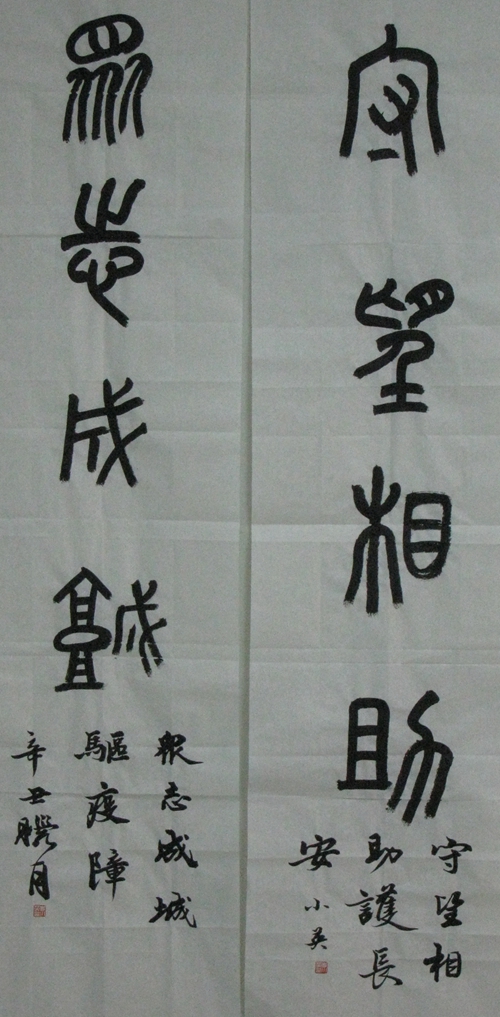 守望相助
守望相
助護長
安 小英
眾志成城
衆志成城
驅疫障
辛丑臘月